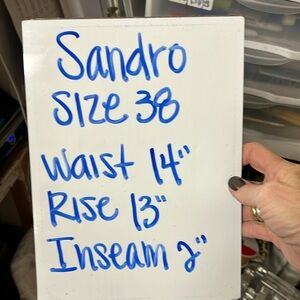 Sandro
Size 38
Waist 14"
Rise 13"
Inseam 2"